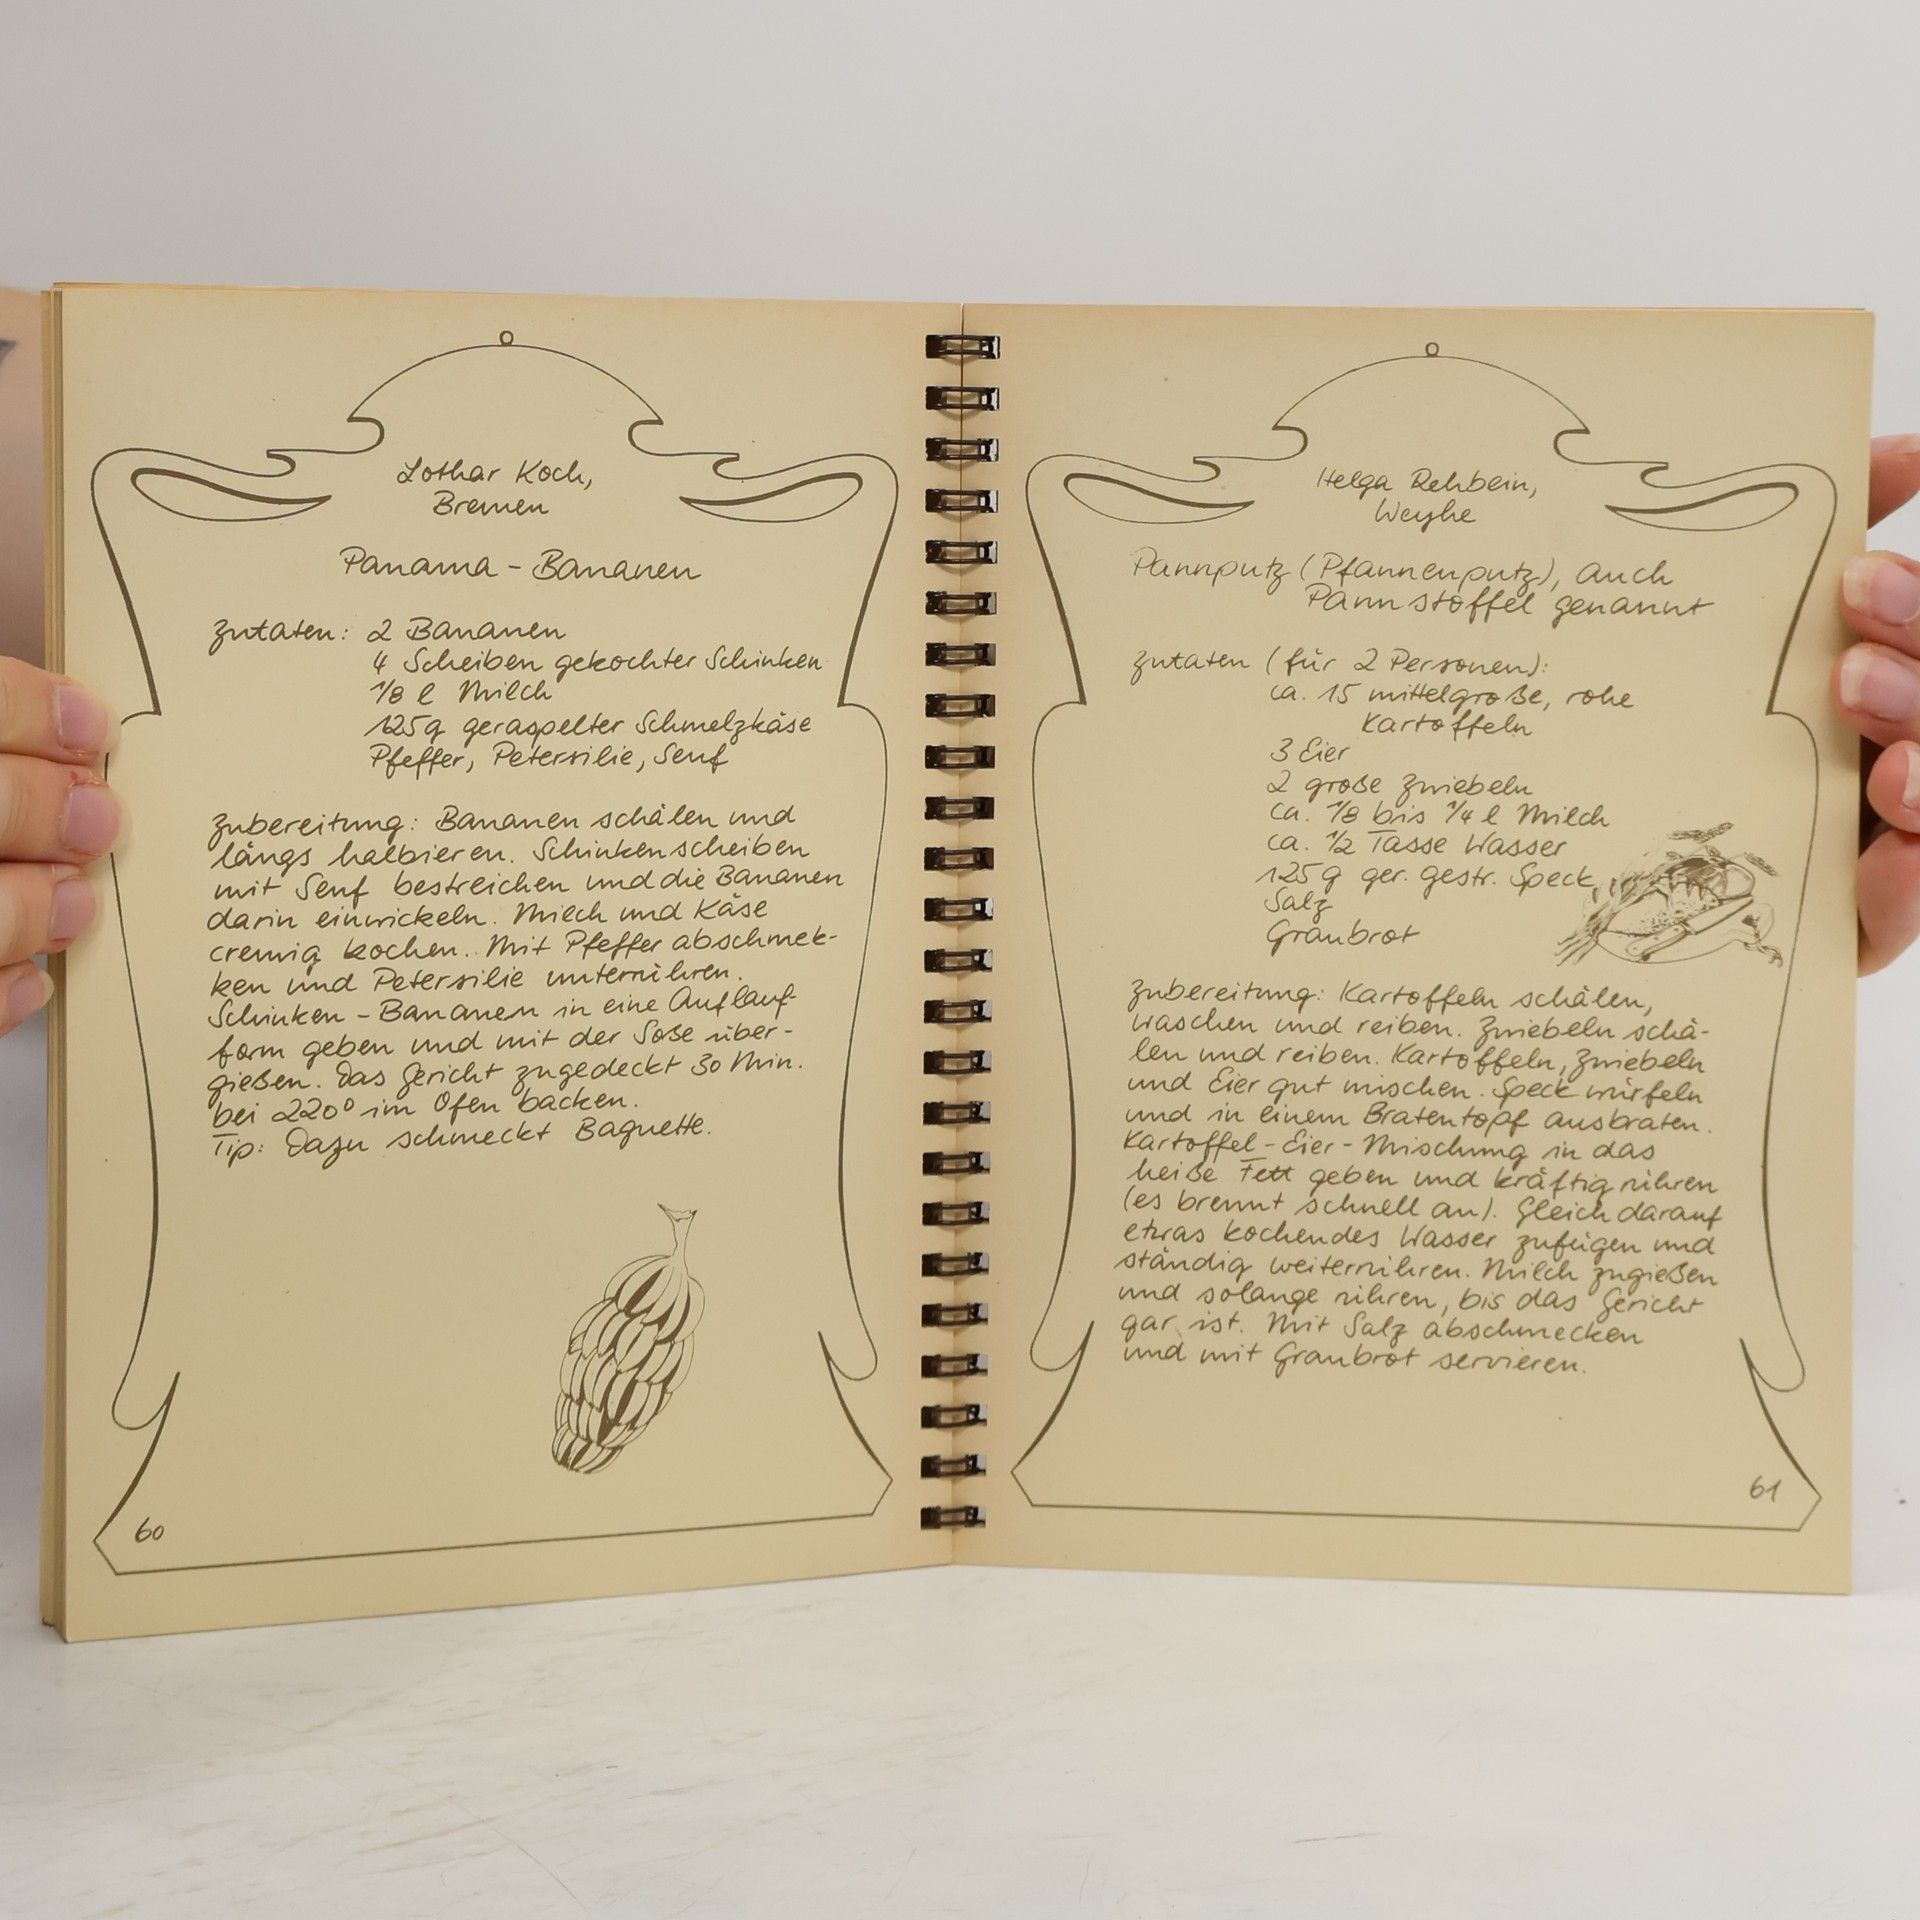 Lothar Koch,
Bremen
Panama - Bananen
Zutaten: 2 Bananen
4 Scheiben gekochter Schinken
1/8 l Milch
125g geraspelter Schmelzkäse
Pfeffer, Petersilie, Senf
Zubereitung: Bananen schälen und
längs halbieren. Schinkenscheiben
mit Senf bestreichen und die Bananen
darin einwickeln. Milch und Käse
cremig kochen. Mit Pfeffer abschmek-
ken und Petersilie unterrühren.
Schinken - Bananen in eine Auflauf-
form geben und mit der Soße über-
gießen. Das Gericht zugedeckt 30 Min.
bei 220° im Ofen backen.
Tip: Dazu schmeckt Baguette.
60
Helga Rehbein,
Weyhe
Pannputz (Pfannenputz), auch
Pannstoffel genannt
Zutaten (für 2 Personen):
ca. 15 mittelgroße, rohe
Kartoffeln
3 Eier
2 große Zwiebeln
ca. 1/8 bis 1/4 l Milch
ca. 1/2 Tasse Wasser
125g ger. gestr. Speck
Salz
Graubrot
Zubereitung: Kartoffeln schälen,
waschen und reiben. Zwiebeln schä-
len und reiben. Kartoffeln, Zwiebeln
und Eier gut mischen. Speck würfeln
und in einem Bratentopf ausbraten.
Kartoffel - Eier - Mischung in das
heiße Fett geben und kräftig rühren
(es brennt schnell an). Gleich darauf
etwas kochendes Wasser zufügen und
ständig weiterrühren. Milch zugießen
und solange rühren, bis das Gericht
gar ist. Mit Salz abschmecken
und mit Graubrot servieren.
61